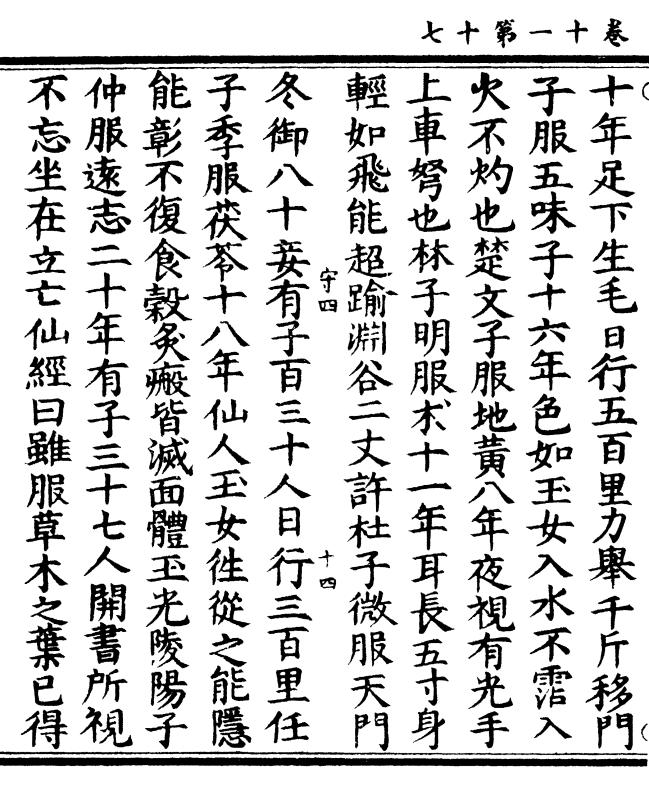 卷十一第十七
十年足下生毛日行五百里力舉千斤移門
子服五味子十六年色如玉女入水不霑入
火不灼也楚文子服地黃八年夜視有光手
上車弩也林子明服朮十一年耳長五寸身
輕如飛能超踰淵谷二丈許杜子微服天門
守四
十四
冬御八十妾有子百三十人日行三百里任
子季服茯苓十八年仙人玉女徃從之能隱
能彰不復食穀灸瘢皆滅面體玉光陵陽子
仲服遠志二十年有子三十七人開書所視
不忘坐在立亡仙經曰雖服草木之葉已得